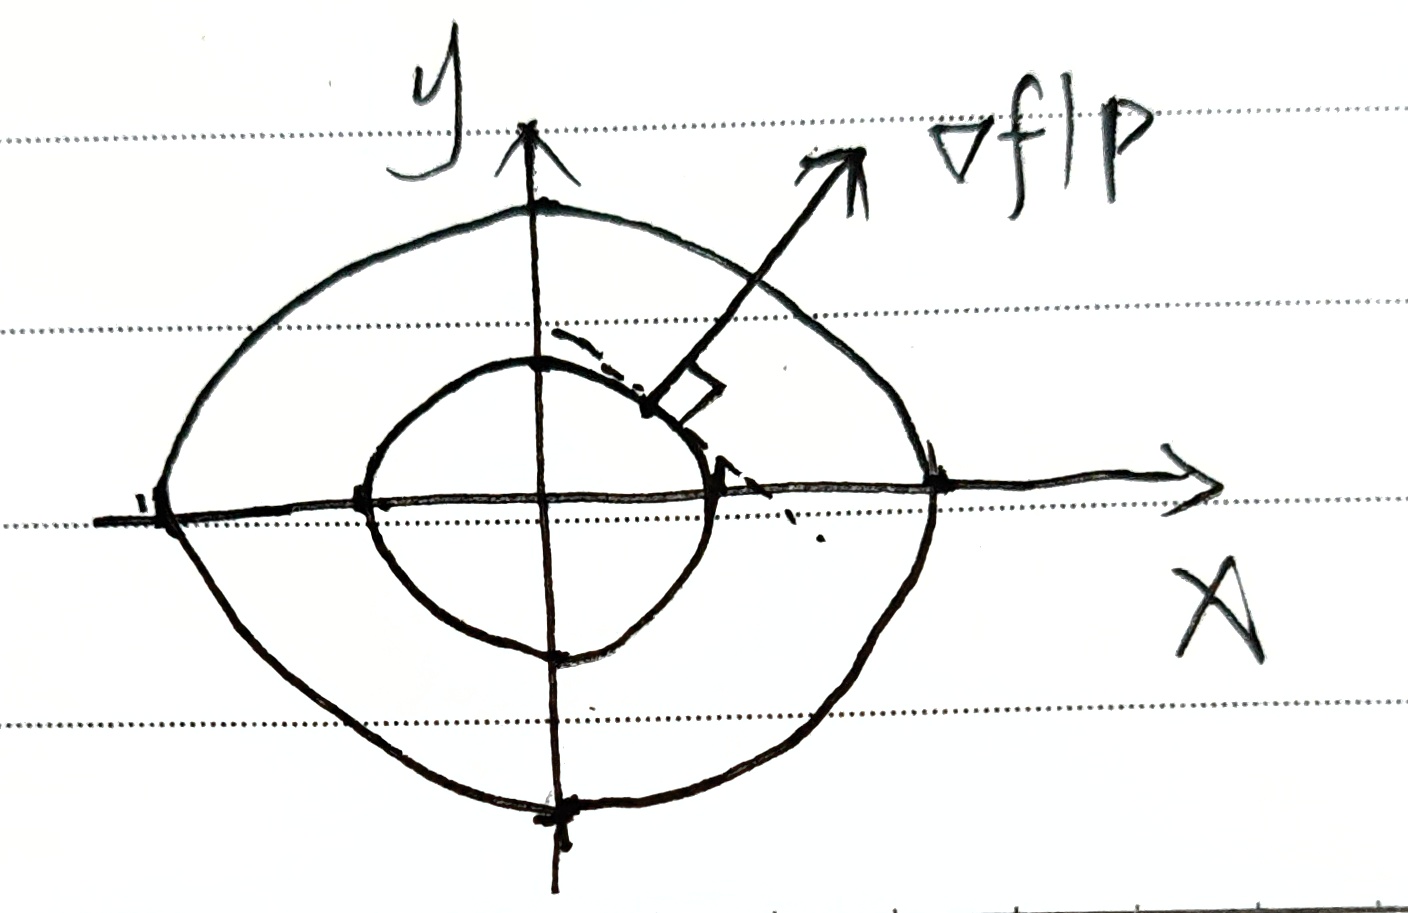 y
∇f|p
x